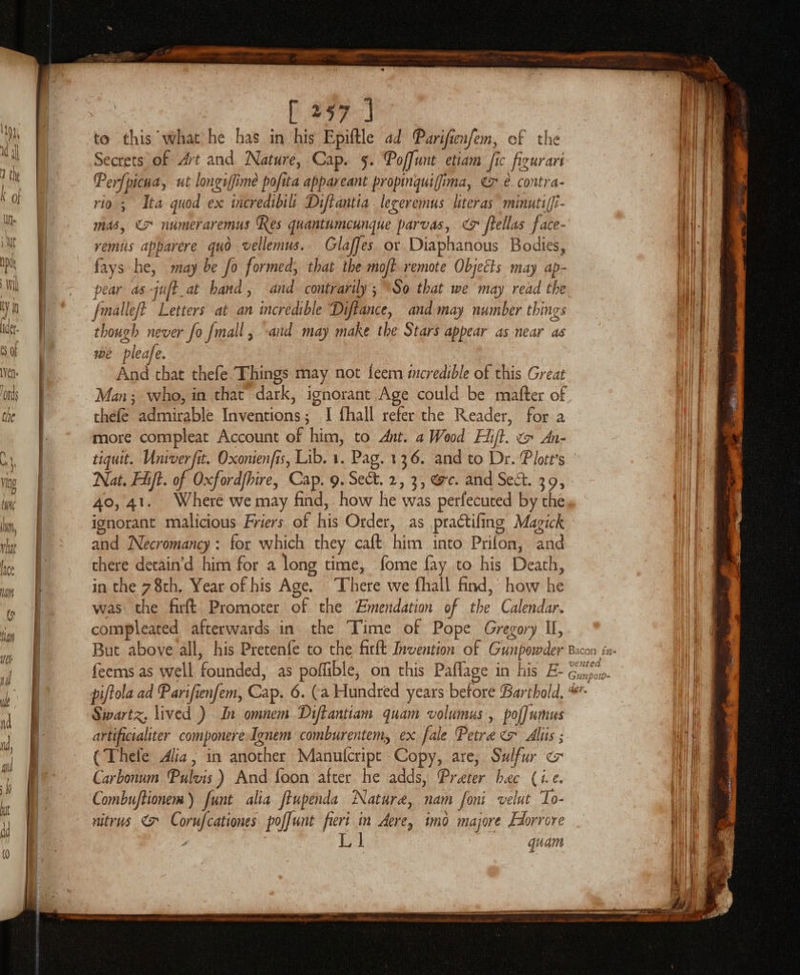 [ 257 ]
to this what he has in his Epiſtle ad Pariſienſem, of the
Secrets of Art and Nature, Cap. 5. Poſſunt etiam ſic figurari
Perſpicua, ut longiſſimè poſita appareant propinquiſſima, & è contra-
rio ; Ita quod ex incredibili Diſtantia legeremus literas minutiſſi-
mas, & numeraremus Res quantumcunque parvas, & ſtellas face-
remus apparere quò vellemus. Glaſſes or Diaphanous Bodies,
ſays he, may be ſo formed, that the moſt remote Objects may ap-
pear as juſt at hand, and contrarily ; So that we may read the
ſmalleſt Letters at an incredible Diſtance, and may number things
though never ſo ſmall, and may make the Stars appear as near as
we pleaſe.
And that theſe Things may not ſeem incredible of this Great
Man; who, in that dark, ignorant Age could be maſter of
theſe admirable Inventions; I ſhall refer the Reader, for a
more compleat Account of him, to Ant. a Wood Hiſt. & An-
tiquit. Univerſit. Oxonienſis, Lib. 1. Pag. 136. and to Dr. Plott's
Nat. Hiſt. of Oxfordſhire, Cap. 9. Sect. 2, 3, &c. and Sect. 39,
40, 41. Where we may find, how he was perſecuted by the
ignorant malicious Friers of his Order, as practiſing Magick
and Necromancy : for which they caſt him into Priſon, and
there detain'd him for a long time, ſome ſay to his Death,
in the 78th. Year of his Age. There we ſhall find, how he
was the firſt Promoter of the Emendation of the Calendar,
compleated afterwards in the Time of Pope Gregory II,
But above all, his Pretenſe to the firſt Invention of Gunpowder
ſeems as well founded, as poſſible, on this Paſſage in his E-
piſtola ad Pariſienſem, Cap. 6. (a Hundred years before Barthold,
Swartz, lived ) In omnem Diſtantiam quam volumus, poſſumus
artificialiter componere Ignem comburentem, ex ſale Petræ & Aliis ;
(Theſe Alia, in another Manuſcript Copy, are, Sulfur &
Carbonum Pulvis ) And ſoon after he adds, Præter hæc (i. e.
Combuſtionem) ſunt alia ſtupenda Naturæ, nam ſoni velut To-
nitrus & Coruſcationes poſſunt fieri in Aere, imò majore Horrore
L l
quam
Bacon in-
vented
Gunpow-
der.